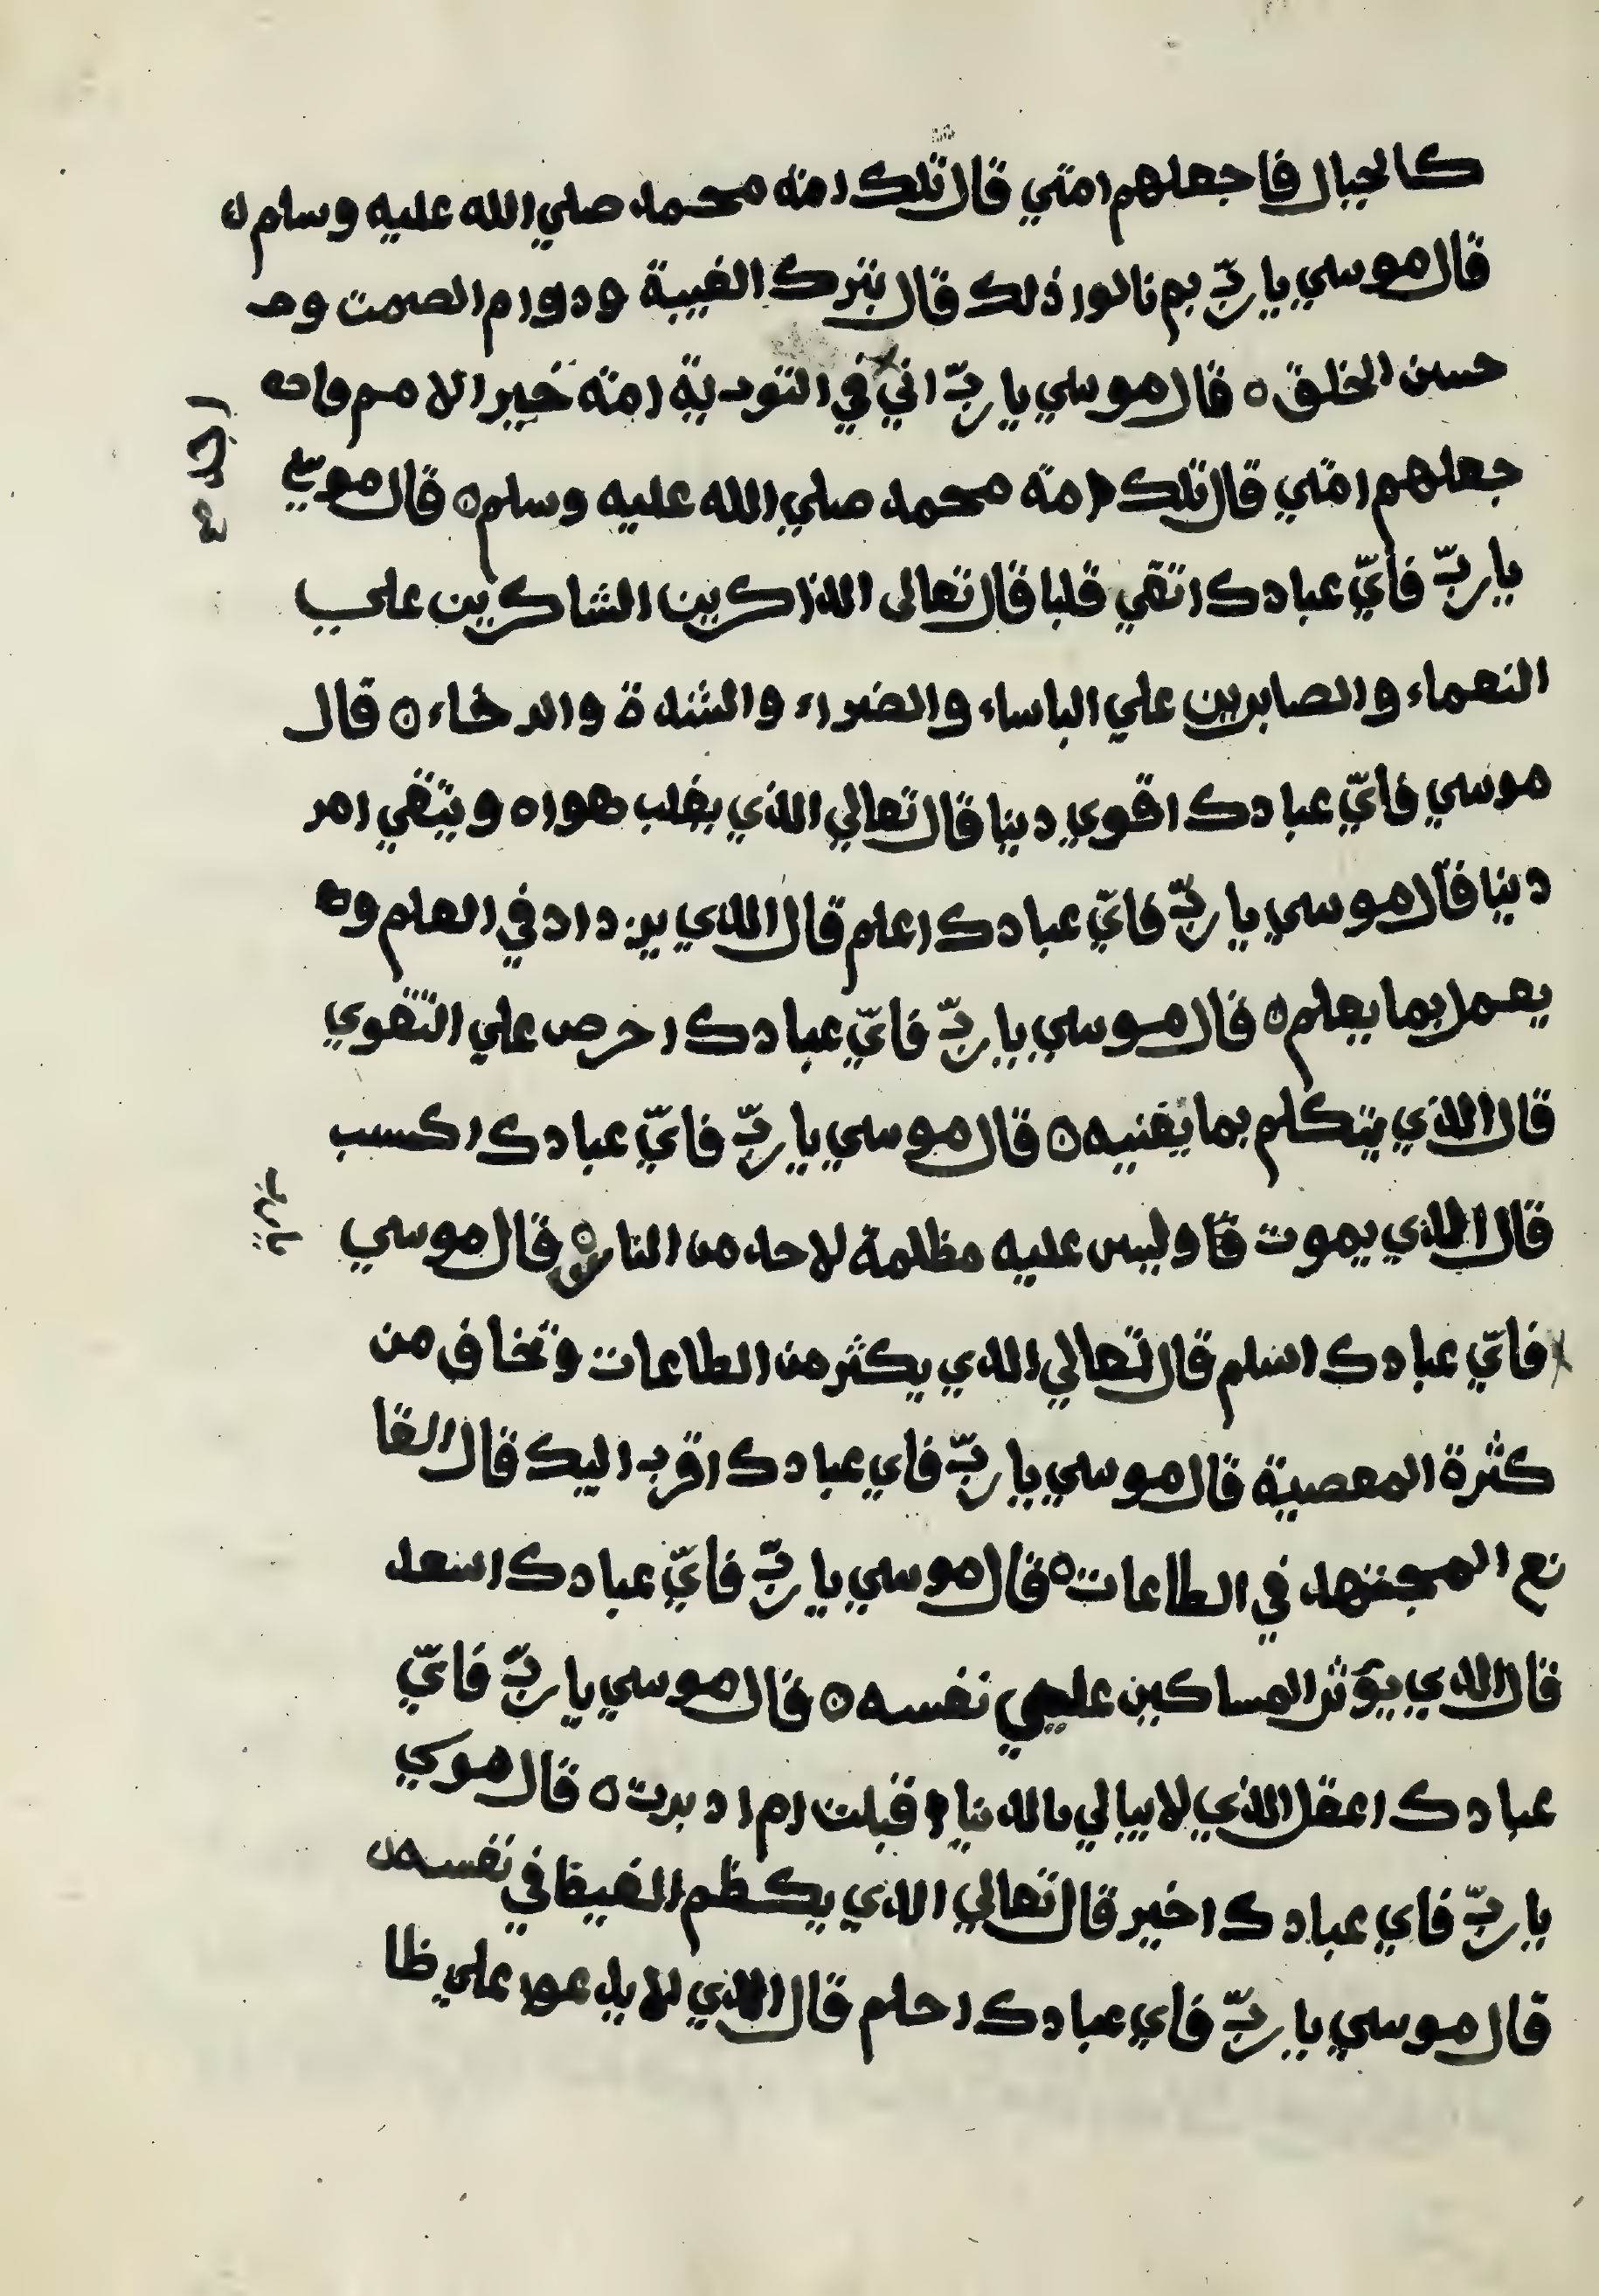 كالجبال فاجعلهم امتي قال تلك امة محمد صلي الله عليه وسلم ن
قال موسي يا ربّ بم نالوا ذلك قال بترك الغيبة ودوام الصمت وحـ
حسن الخلق ه قال موسي يا ربّ اني في التورية امة خير الامم فاجـ
اجد ح
جعلهم امتي قال تلك امة محمد صلي الله عليه وسلم ه قال موسي
يا ربّ فايّ عبادك اتقي قلبا قال تعالى الذاكرين الشاكرين علي
النعماء والصابرين علي الباساء والضراء والشدة والرخاء ه قال
موسي فايّ عبادك اقوي دينا قال تعالي الذي يغلب هواه ويتقي امر
دينا قال موسي يا ربّ فايّ عبادك اعلم قال الذي يزداد في العلم و
يعمل بما يعلم ه قال موسي يا ربّ فايّ عبادك اخرص علي التقوي
قال الذي يتكلم بما يغنيه ه قال موسي يا ربّ فايّ عبادك اكسب
قال الذي يموت وليس عليه مظلمة لاحد من الناس ه قال موسي
يا رب
فايّ عبادك اسلم قال تعالي الذي يكثر من الطاعات وتخاف من
كثرة المعصية قال موسي يا ربّ فاي عبادك اقرب اليك قال القا
نع المجتهد في الطاعات ه قال موسي يا ربّ فايّ عبادك اسعد
قال الذي يؤثر المساكين علي نفسه ه قال موسي يا ربّ فايّ
عبادك اعقل الذي لا يبالي بالدنيا اقبلت ام ادبرت ه قال موسي
يا ربّ فاي عبادك اخير قال تعالي الذي يكظم الغيظ في نفسه ه
قال موسي يا ربّ فاي عبادك احلم قال الذي لا يدعوا علي ظا